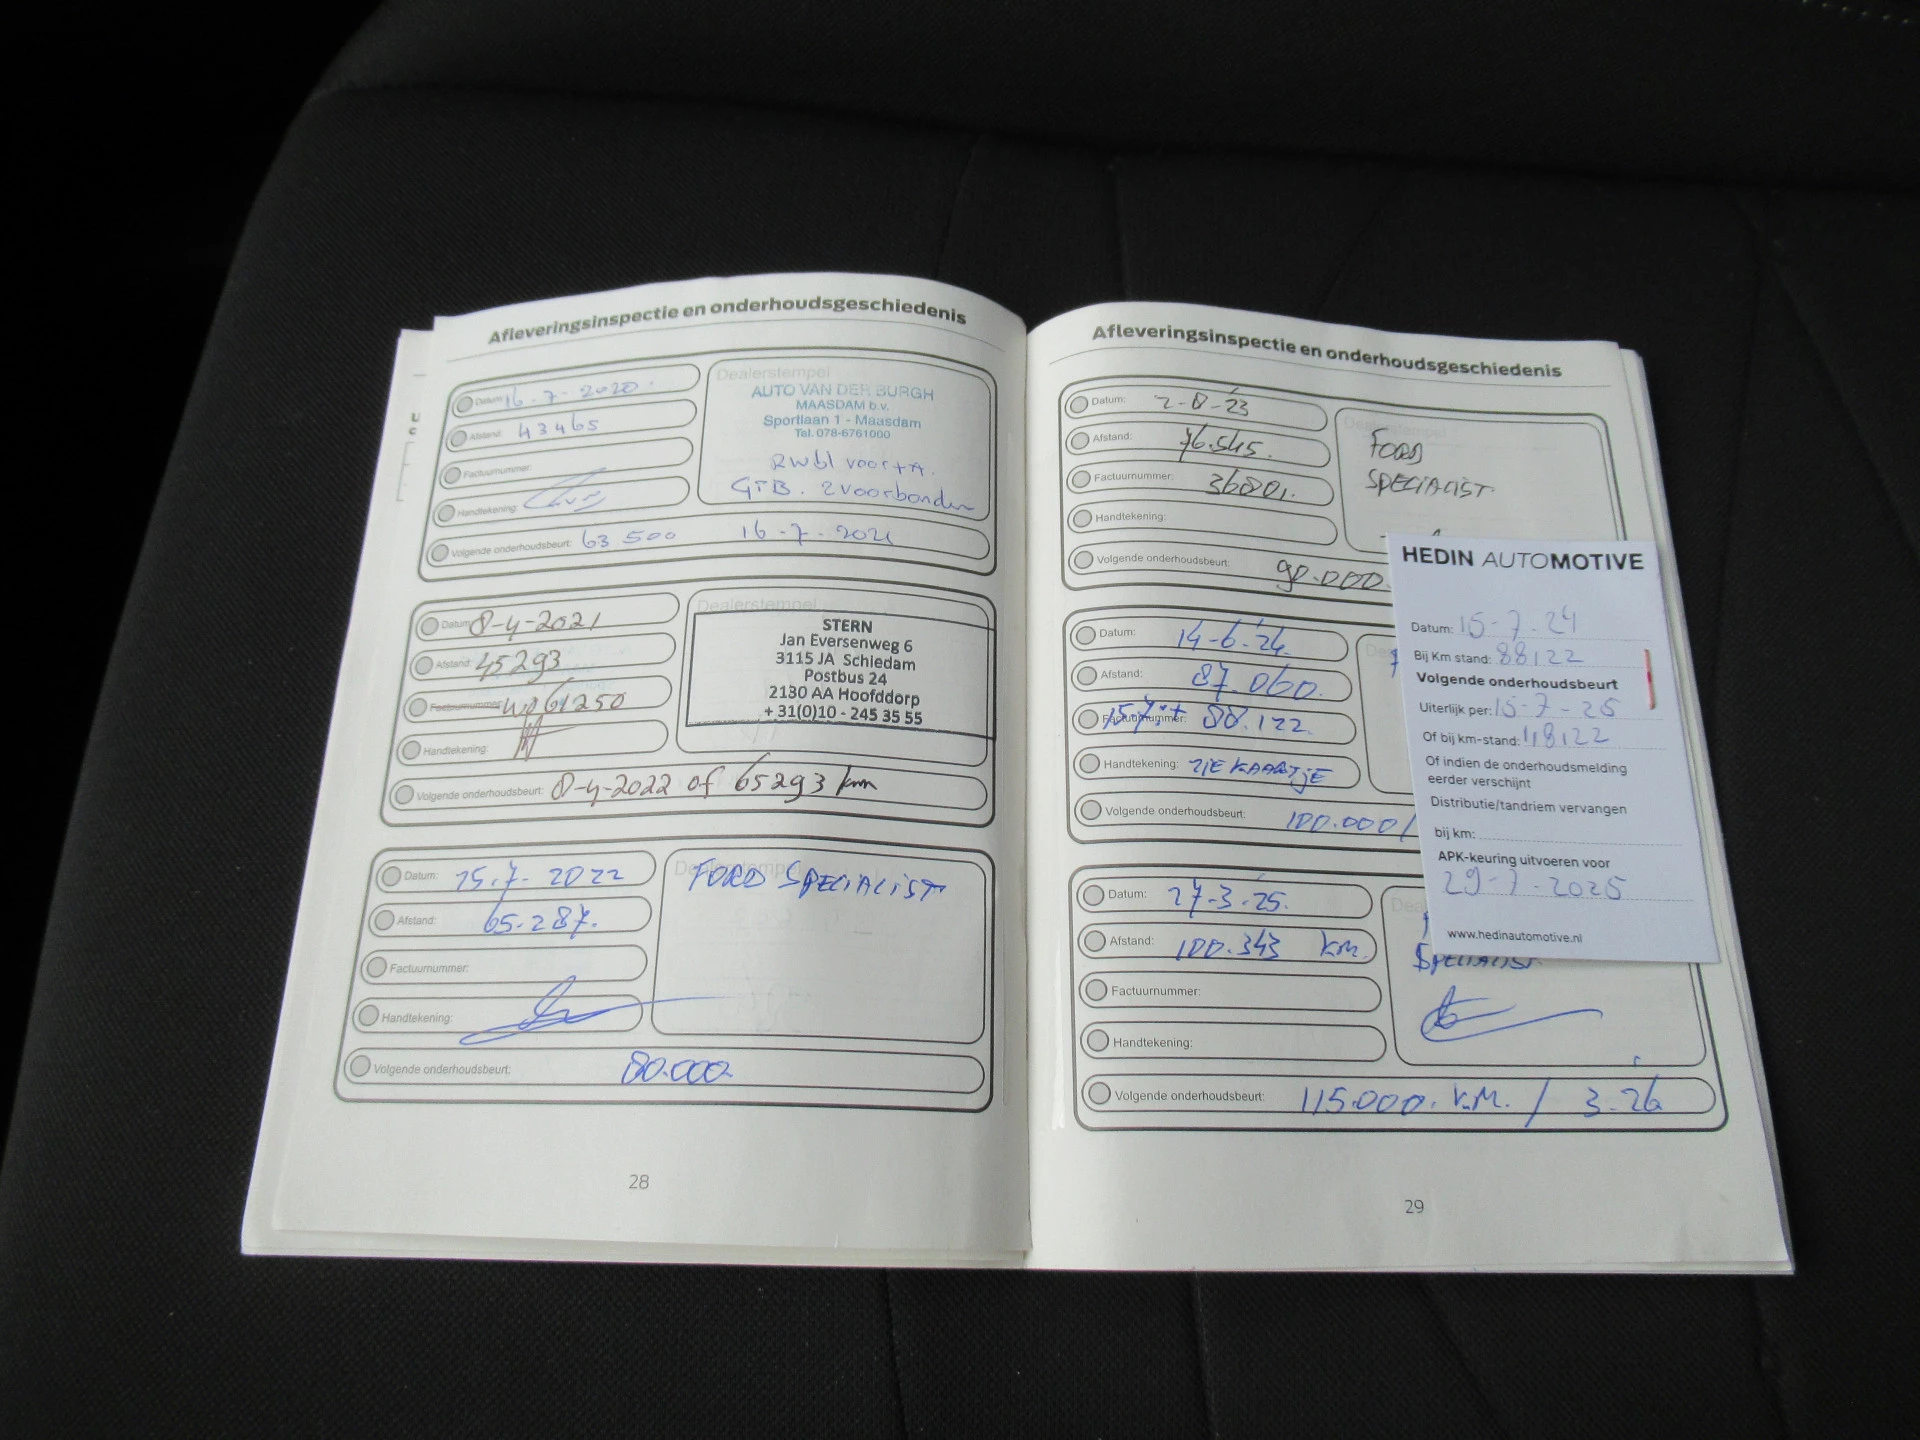 Afleveringsinspectie en onderhoudsgeschiedenis
Datum: 16-7-2020
Afstand: 43465
Factuurnummer:
Handtekening:
Dealerstempel
AUTO VAN DER BURGH
MAASDAM b.v.
Sportlaan 1 - Maasdam
Tel. 078-6761000
GTB. 2 voorbanden
Volgende onderhoudsbeurt: 63 500 16-7-2021
Datum: 8-4-2021
Afstand: 45293
Factuurnummer: wp61250
Handtekening:
Dealerstempel
STERN
Jan Eversenweg 6
3115 JA Schiedam
Postbus 24
2130 AA Hoofddorp
+ 31(0)10 - 245 35 55
Volgende onderhoudsbeurt: 8-4-2022 of 65293 km
Datum: 25.7-2022
Afstand: 65.287.
Factuurnummer:
Handtekening:
Dealerstempel
FORD SPECIALIST
Volgende onderhoudsbeurt: 80.000
28
Afleveringsinspectie en onderhoudsgeschiedenis
Datum: 2-8-23
Afstand: 76.545.
Factuurnummer: 36801.
Handtekening:
Dealerstempel
FORD
SPECIALIST.
Volgende onderhoudsbeurt: 90.000
Datum: 14-6-24.
Afstand: 87.060.
Factuurnummer: 88.122
Handtekening: ZIE KAARTJE
Volgende onderhoudsbeurt: 100.000/
Datum: 27-3-25.
Afstand: 100.343 KM.
Factuurnummer:
Handtekening:
SPECIALIST.
Volgende onderhoudsbeurt: 115.000. KM. / 3-26
29
HEDIN AUTOMOTIVE
Datum: 15-7-24
Bij Km stand: 88122
Volgende onderhoudsbeurt
Uiterlijk per: 15-7-25
Of bij km-stand: 118122
Of indien de onderhoudsmelding
eerder verschijnt
Distributie/tandriem vervangen
bij km:
APK-keuring uitvoeren voor
29-7-2025
www.hedinautomotive.nl